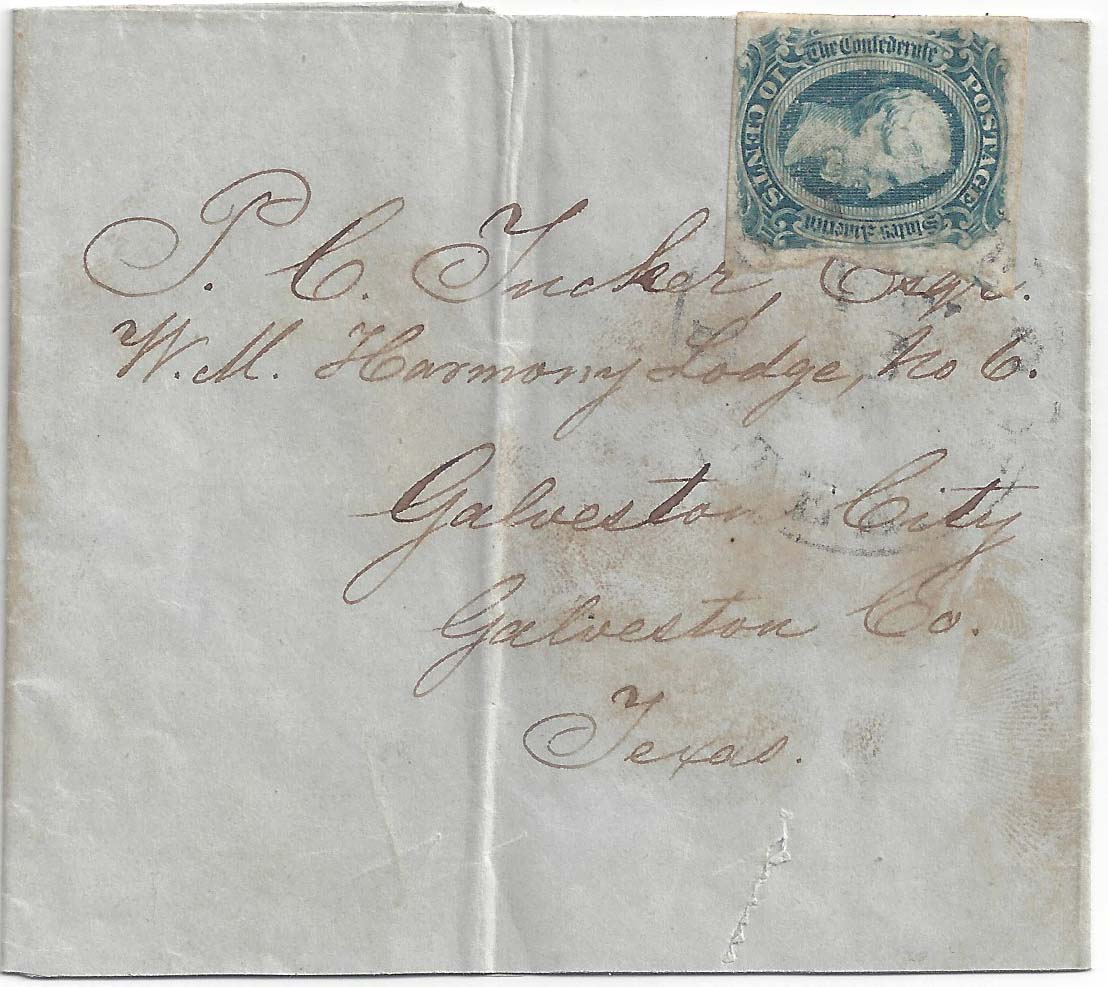 The Confederate
States America
POSTAGE
10 CENTS
P. C. Tucker, Esqr.
W. M. Harmony Lodge, No 6.
Galveston City
Galveston Co.
Texas.